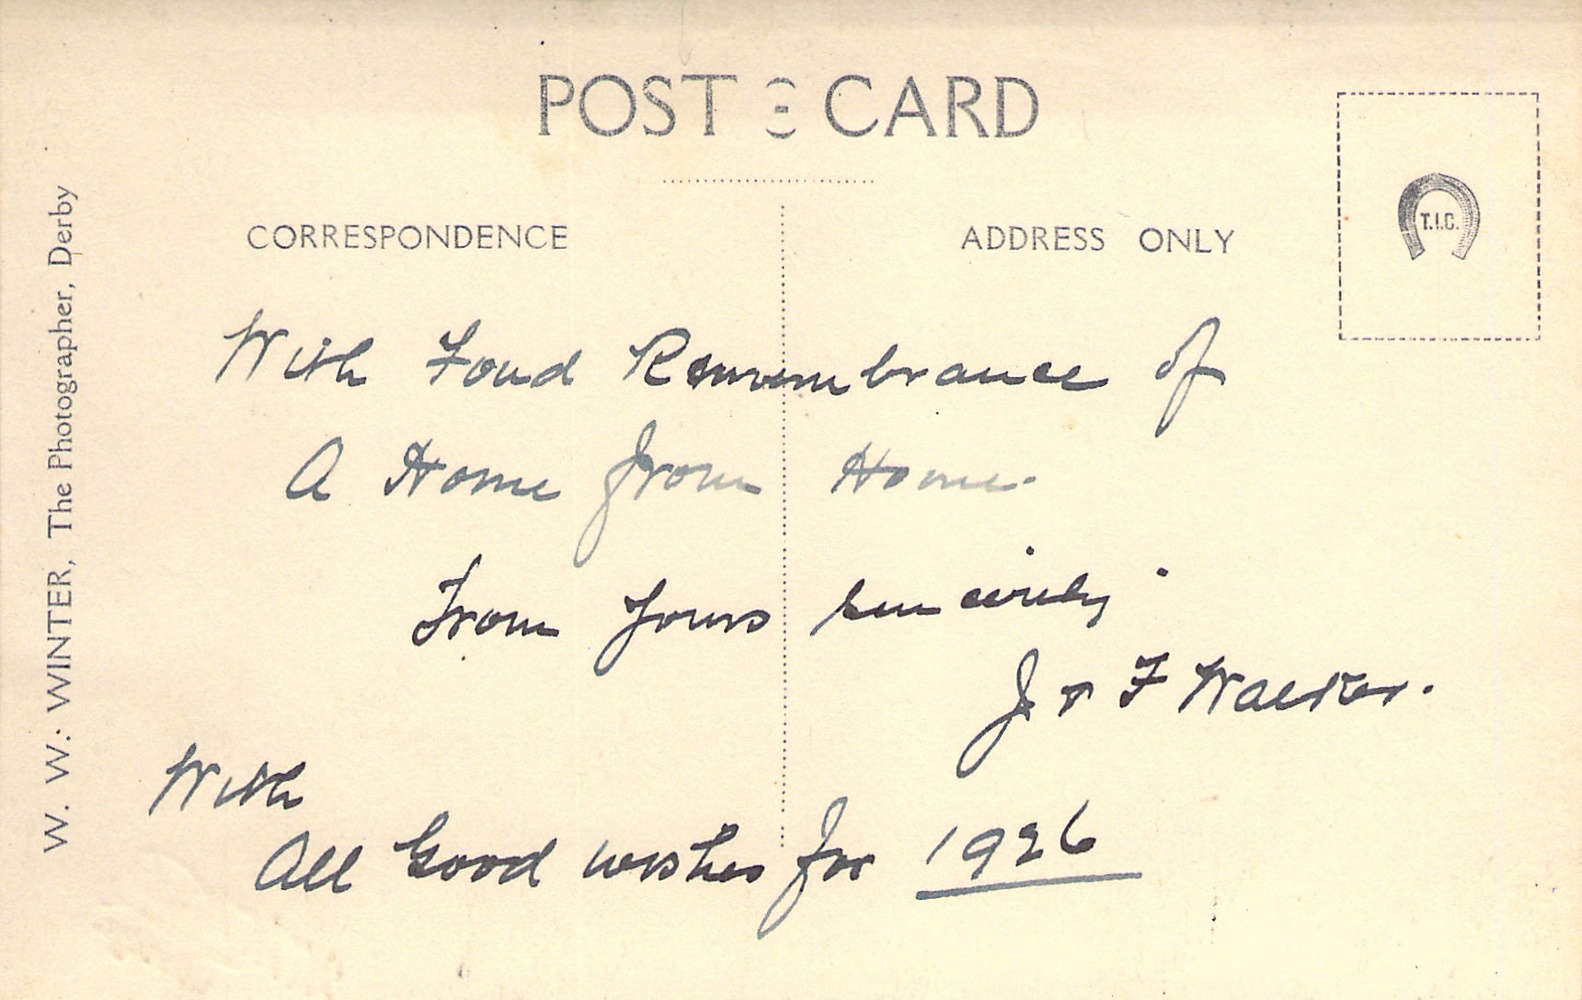 POST CARD
CORRESPONDENCE
ADDRESS ONLY
T.I.C.
W. W. WINTER, The Photographer, Derby
With Fond Remembrance of
A Home from Home.
From Yours sincerely
J & F Walker.
With
All Good wishes for 1926